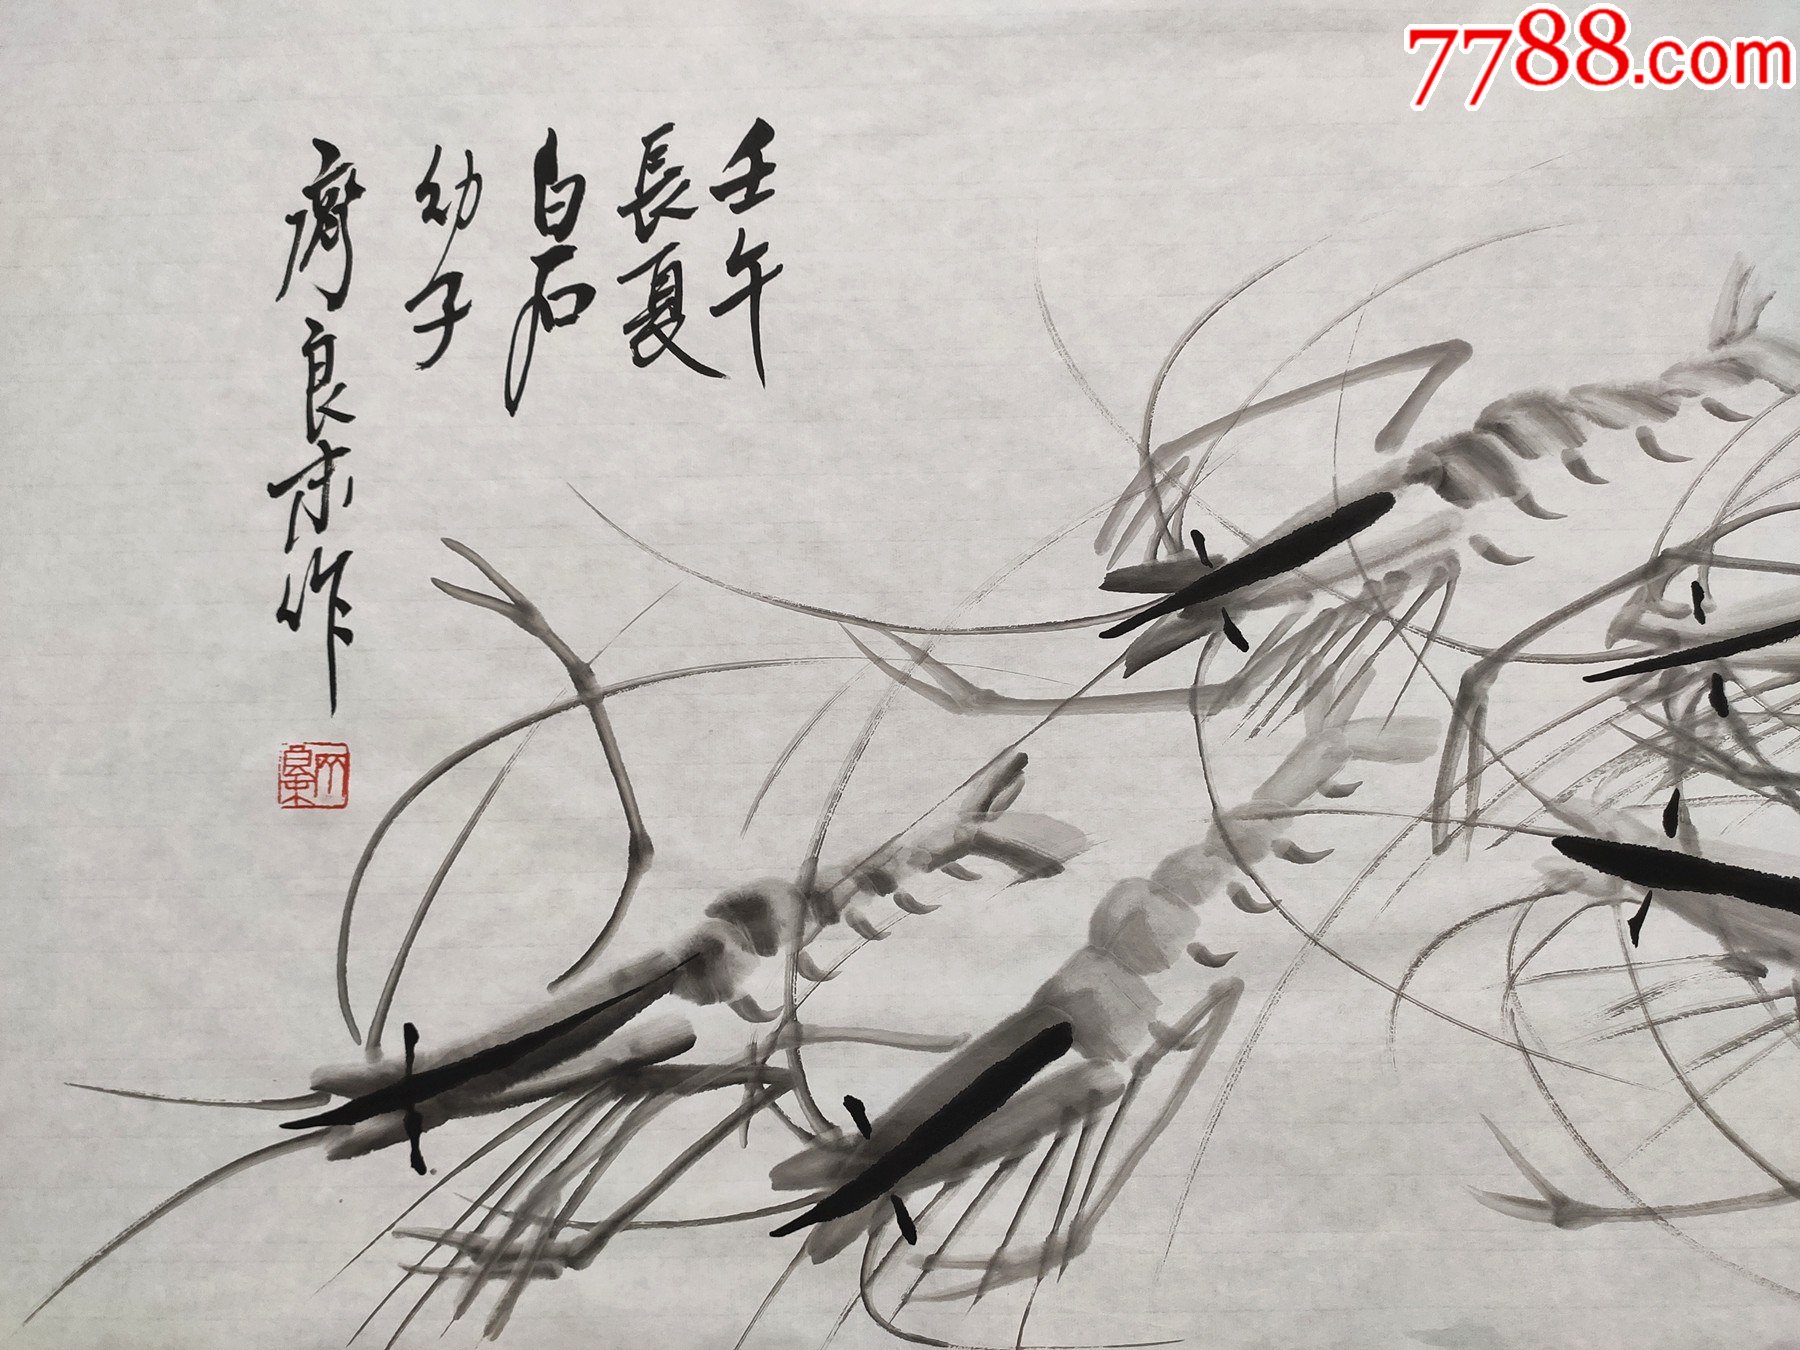 7788.com
壬午
長夏
白石
幼子
齊良末作